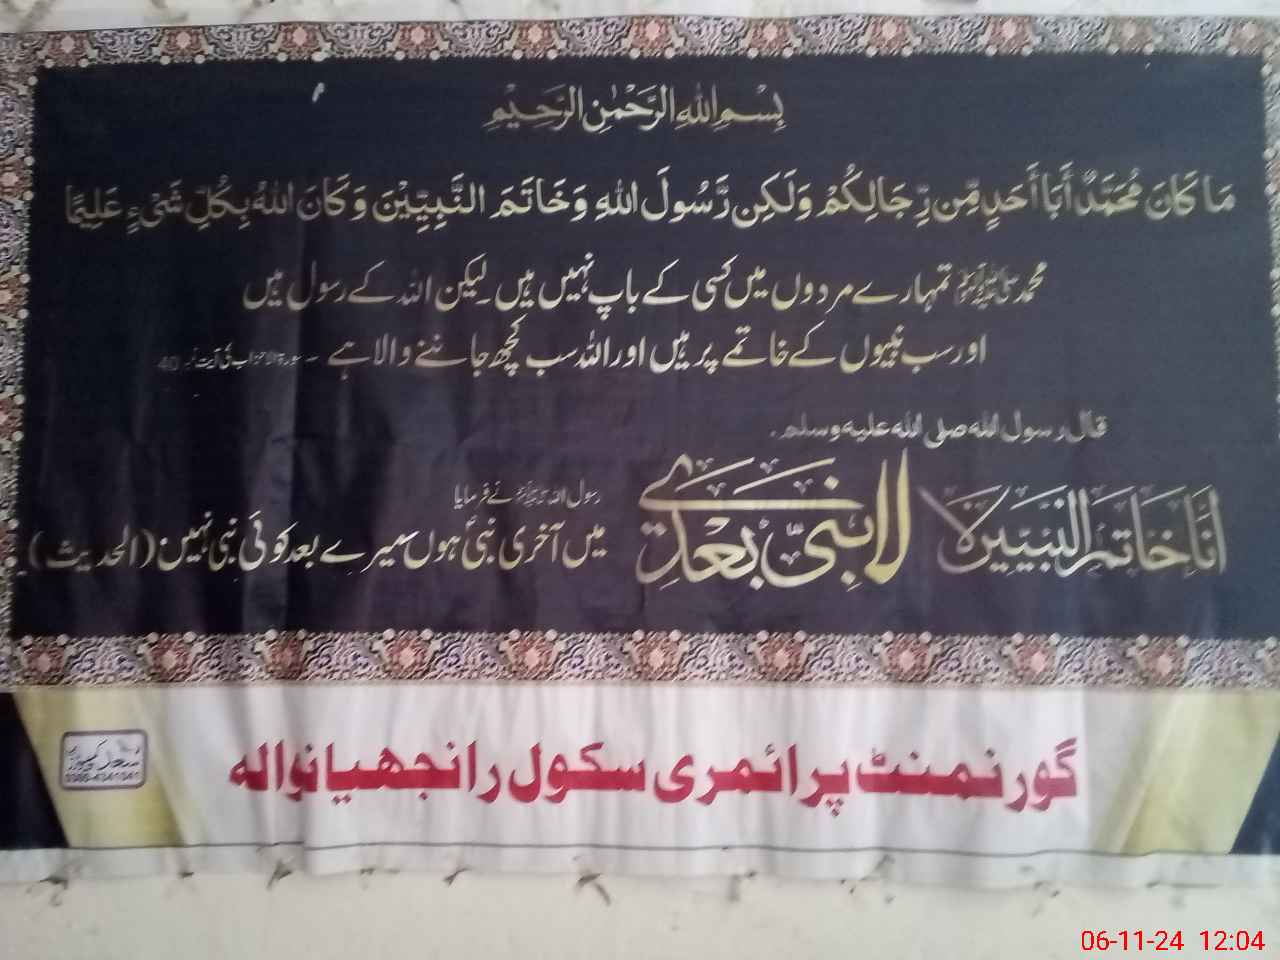 بِسْمِ اللهِ الرَّحْمٰنِ الرَّحِيْمِ
مَا كَانَ مُحَمَّدٌ أَبَا أَحَدٍ مِّن رِّجَالِكُمْ وَلَكِن رَّسُولَ اللهِ وَخَاتَمَ النَّبِيِّيْنَ وَكَانَ اللهُ بِكُلِّ شَيْءٍ عَلِيمًا
محمد ﷺ تمہارے مردوں میں کسی کے باپ نہیں ہیں۔ لیکن اللہ کے رسول ہیں
اور سب نبیوں کے خاتمے پر ہیں اور اللہ سب کچھ جاننے والا ہے ۔ سورۃ الاحزاب کی آیت نمبر 40
قال رسول الله صلى الله عليه وسلم.
اَنَا خَاتَمُ النَّبِيِّيْنَ لَا نَبِيَّ بَعْدِيْ
رسول اللہ ﷺ نے فرمایا
میں آخری نبی ہوں میرے بعد کوئی نبی نہیں: (الحدیث)
گورنمنٹ پرائمری سکول رانجھیانوالہ
06-11-24 12:04